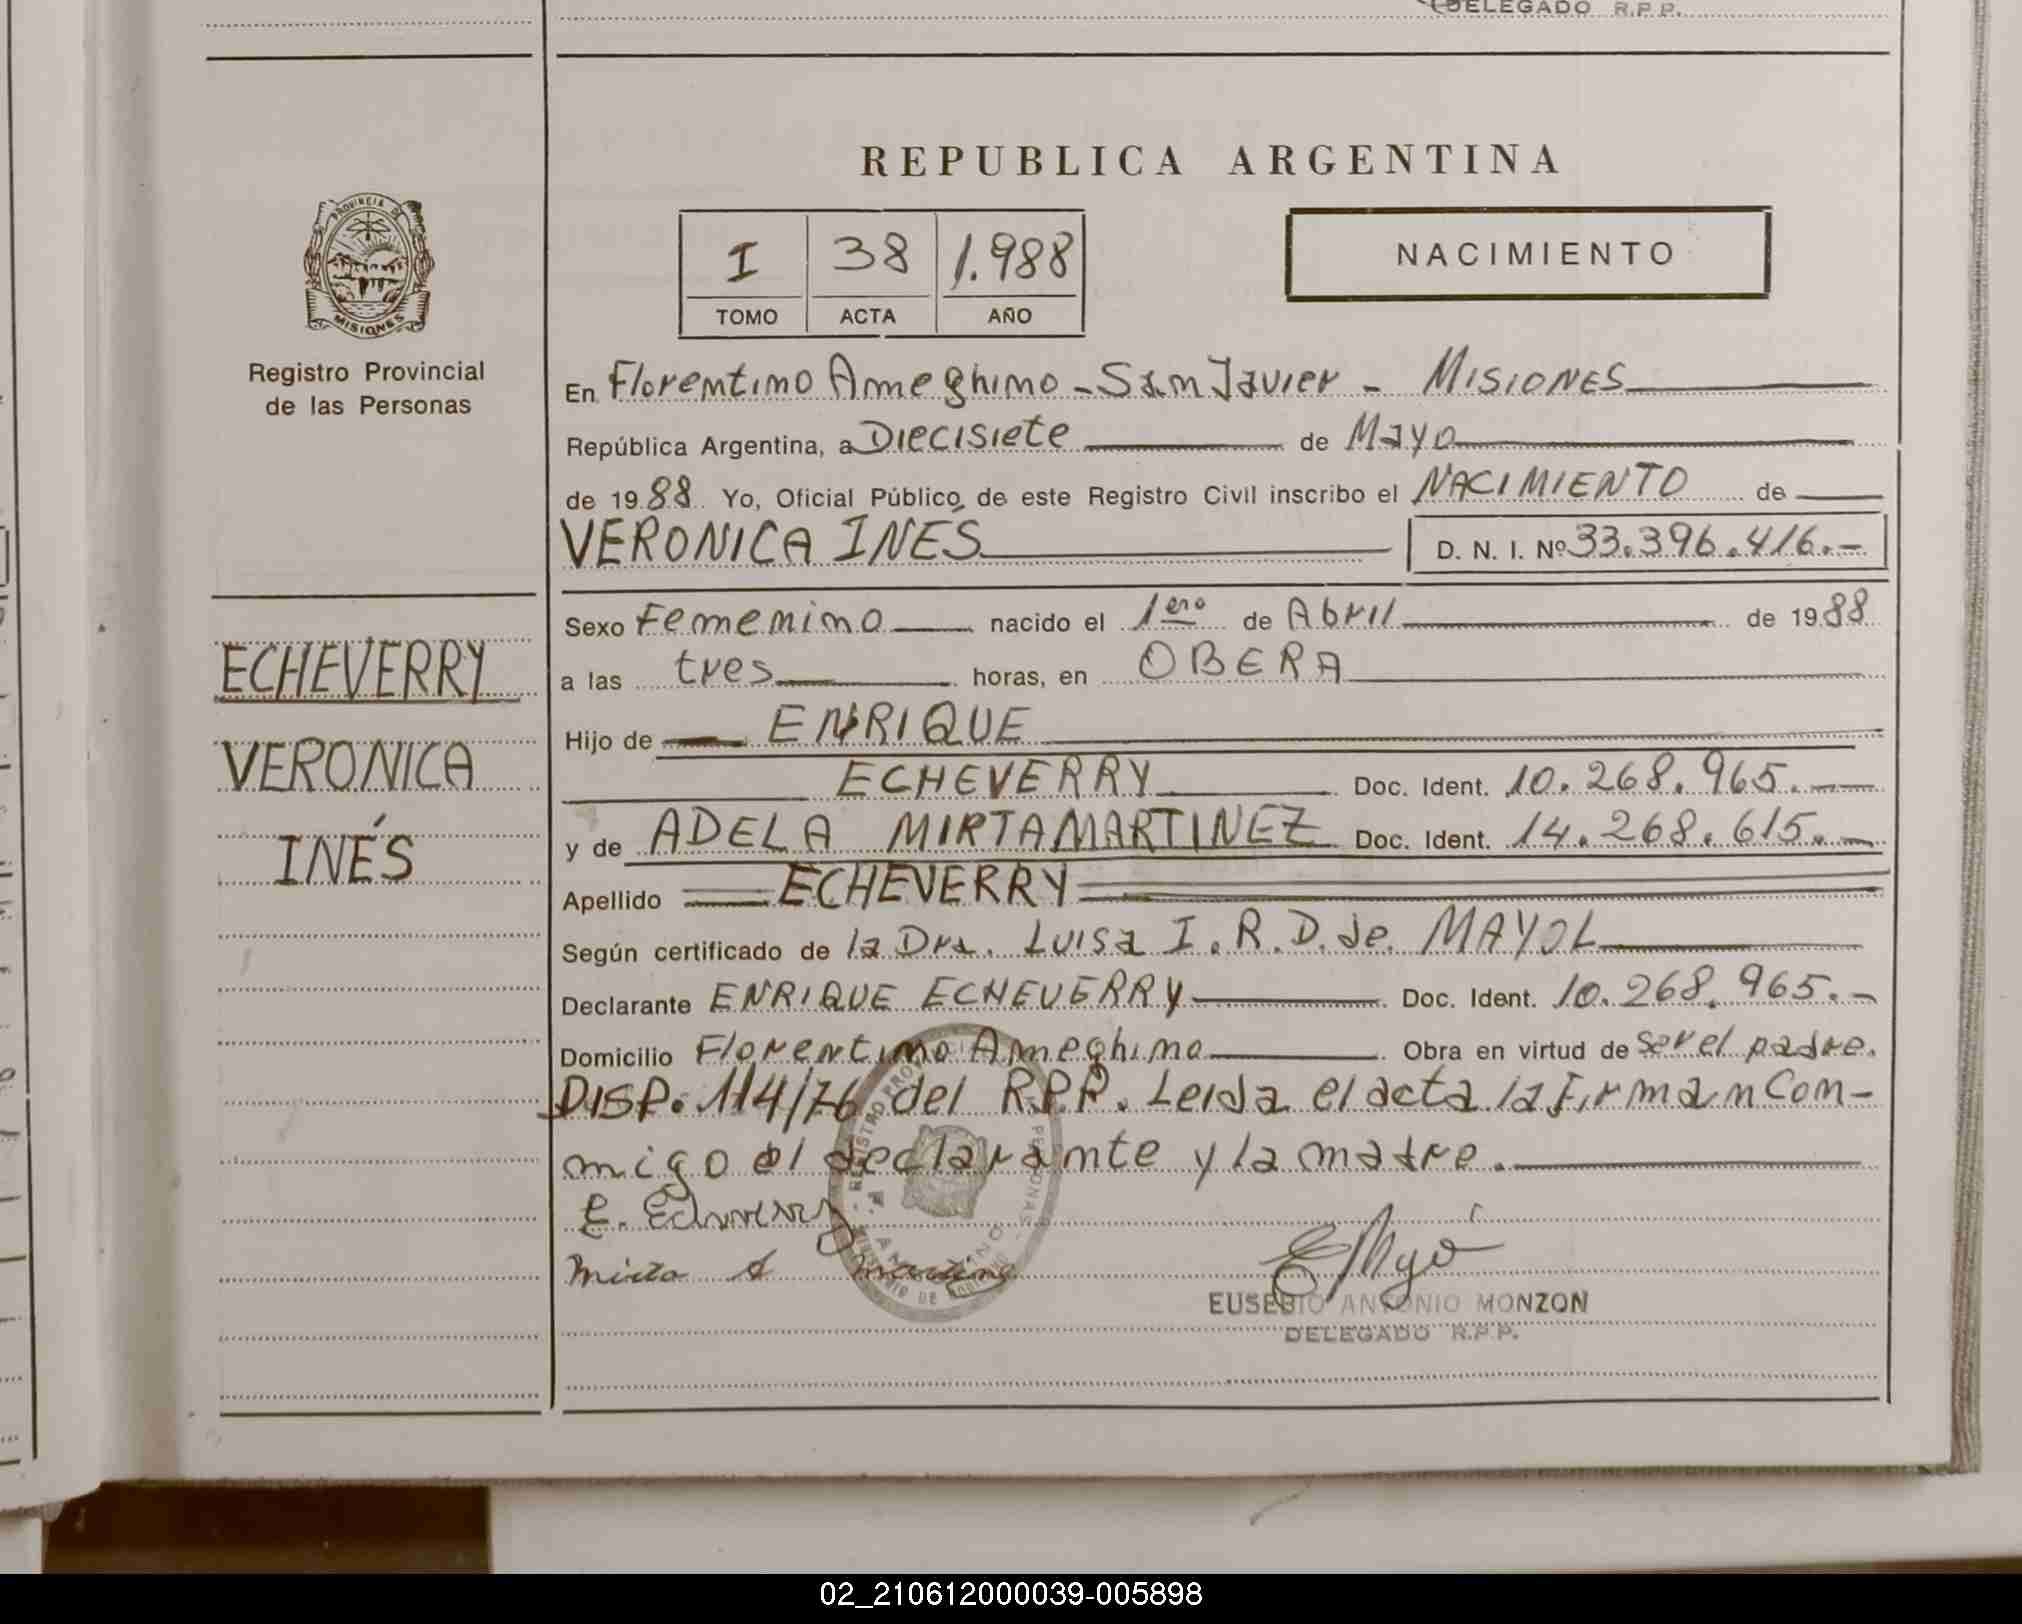 DELEGADO R.P.P.
REPUBLICA ARGENTINA
PROVINCIA DE
MISIONES
Registro Provincial
de las Personas
I 38 1.988
TOMO ACTA AÑO
NACIMIENTO
En Florentino Ameghino - San Javier - MISIONES
República Argentina, a Diecisiete de Mayo
de 1988 Yo, Oficial Público de este Registro Civil inscribo el NACIMIENTO de
VERONICA INÉS D. N. I. Nº 33.396.416.-
Sexo Femenino nacido el 1ero de Abril de 1988
a las tres horas, en OBERA
Hijo de ENRIQUE
ECHEVERRY Doc. Ident. 10.268.965.-
y de ADELA MIRTA MARTINEZ Doc. Ident. 14.268.615.-
Apellido ECHEVERRY
Según certificado de la Dra. Luisa I. R. D. de MAYOL
Declarante ENRIQUE ECHEVERRY Doc. Ident. 10.268.965.-
Domicilio Florentino Ameghino Obra en virtud de ser el padre.
DISP. 114/76 del R.P.P. Leida el acta la Firman Con-
migo el declarante y la madre.
E. Echeverry
Mirta A Martinez
EUSEBIO ANTONIO MONZON
DELEGADO R.P.P.
ECHEVERRY
VERONICA
INÉS
02_210612000039-005898